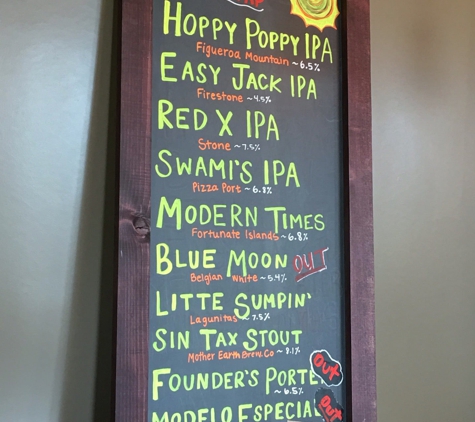 HOPPY POPPY IPA
Figueroa Mountain ~ 6.5%
EASY JACK IPA
Firestone ~ 4.5%
RED X IPA
Stone ~ 7.5%
SWAMI'S IPA
Pizza Port ~ 6.8%
MODERN TIMES
Fortunate Islands ~ 6.8%
BLUE MOON OUT
Belgian White ~ 5.4%
LITTE SUMPIN'
Lagunitas ~ 7.5%
SIN TAX STOUT
Mother Earth Brew. Co ~ 8.1%
OUT
FOUNDER'S PORTE
~ 6.5%
MODELO ESPECIAL OUT